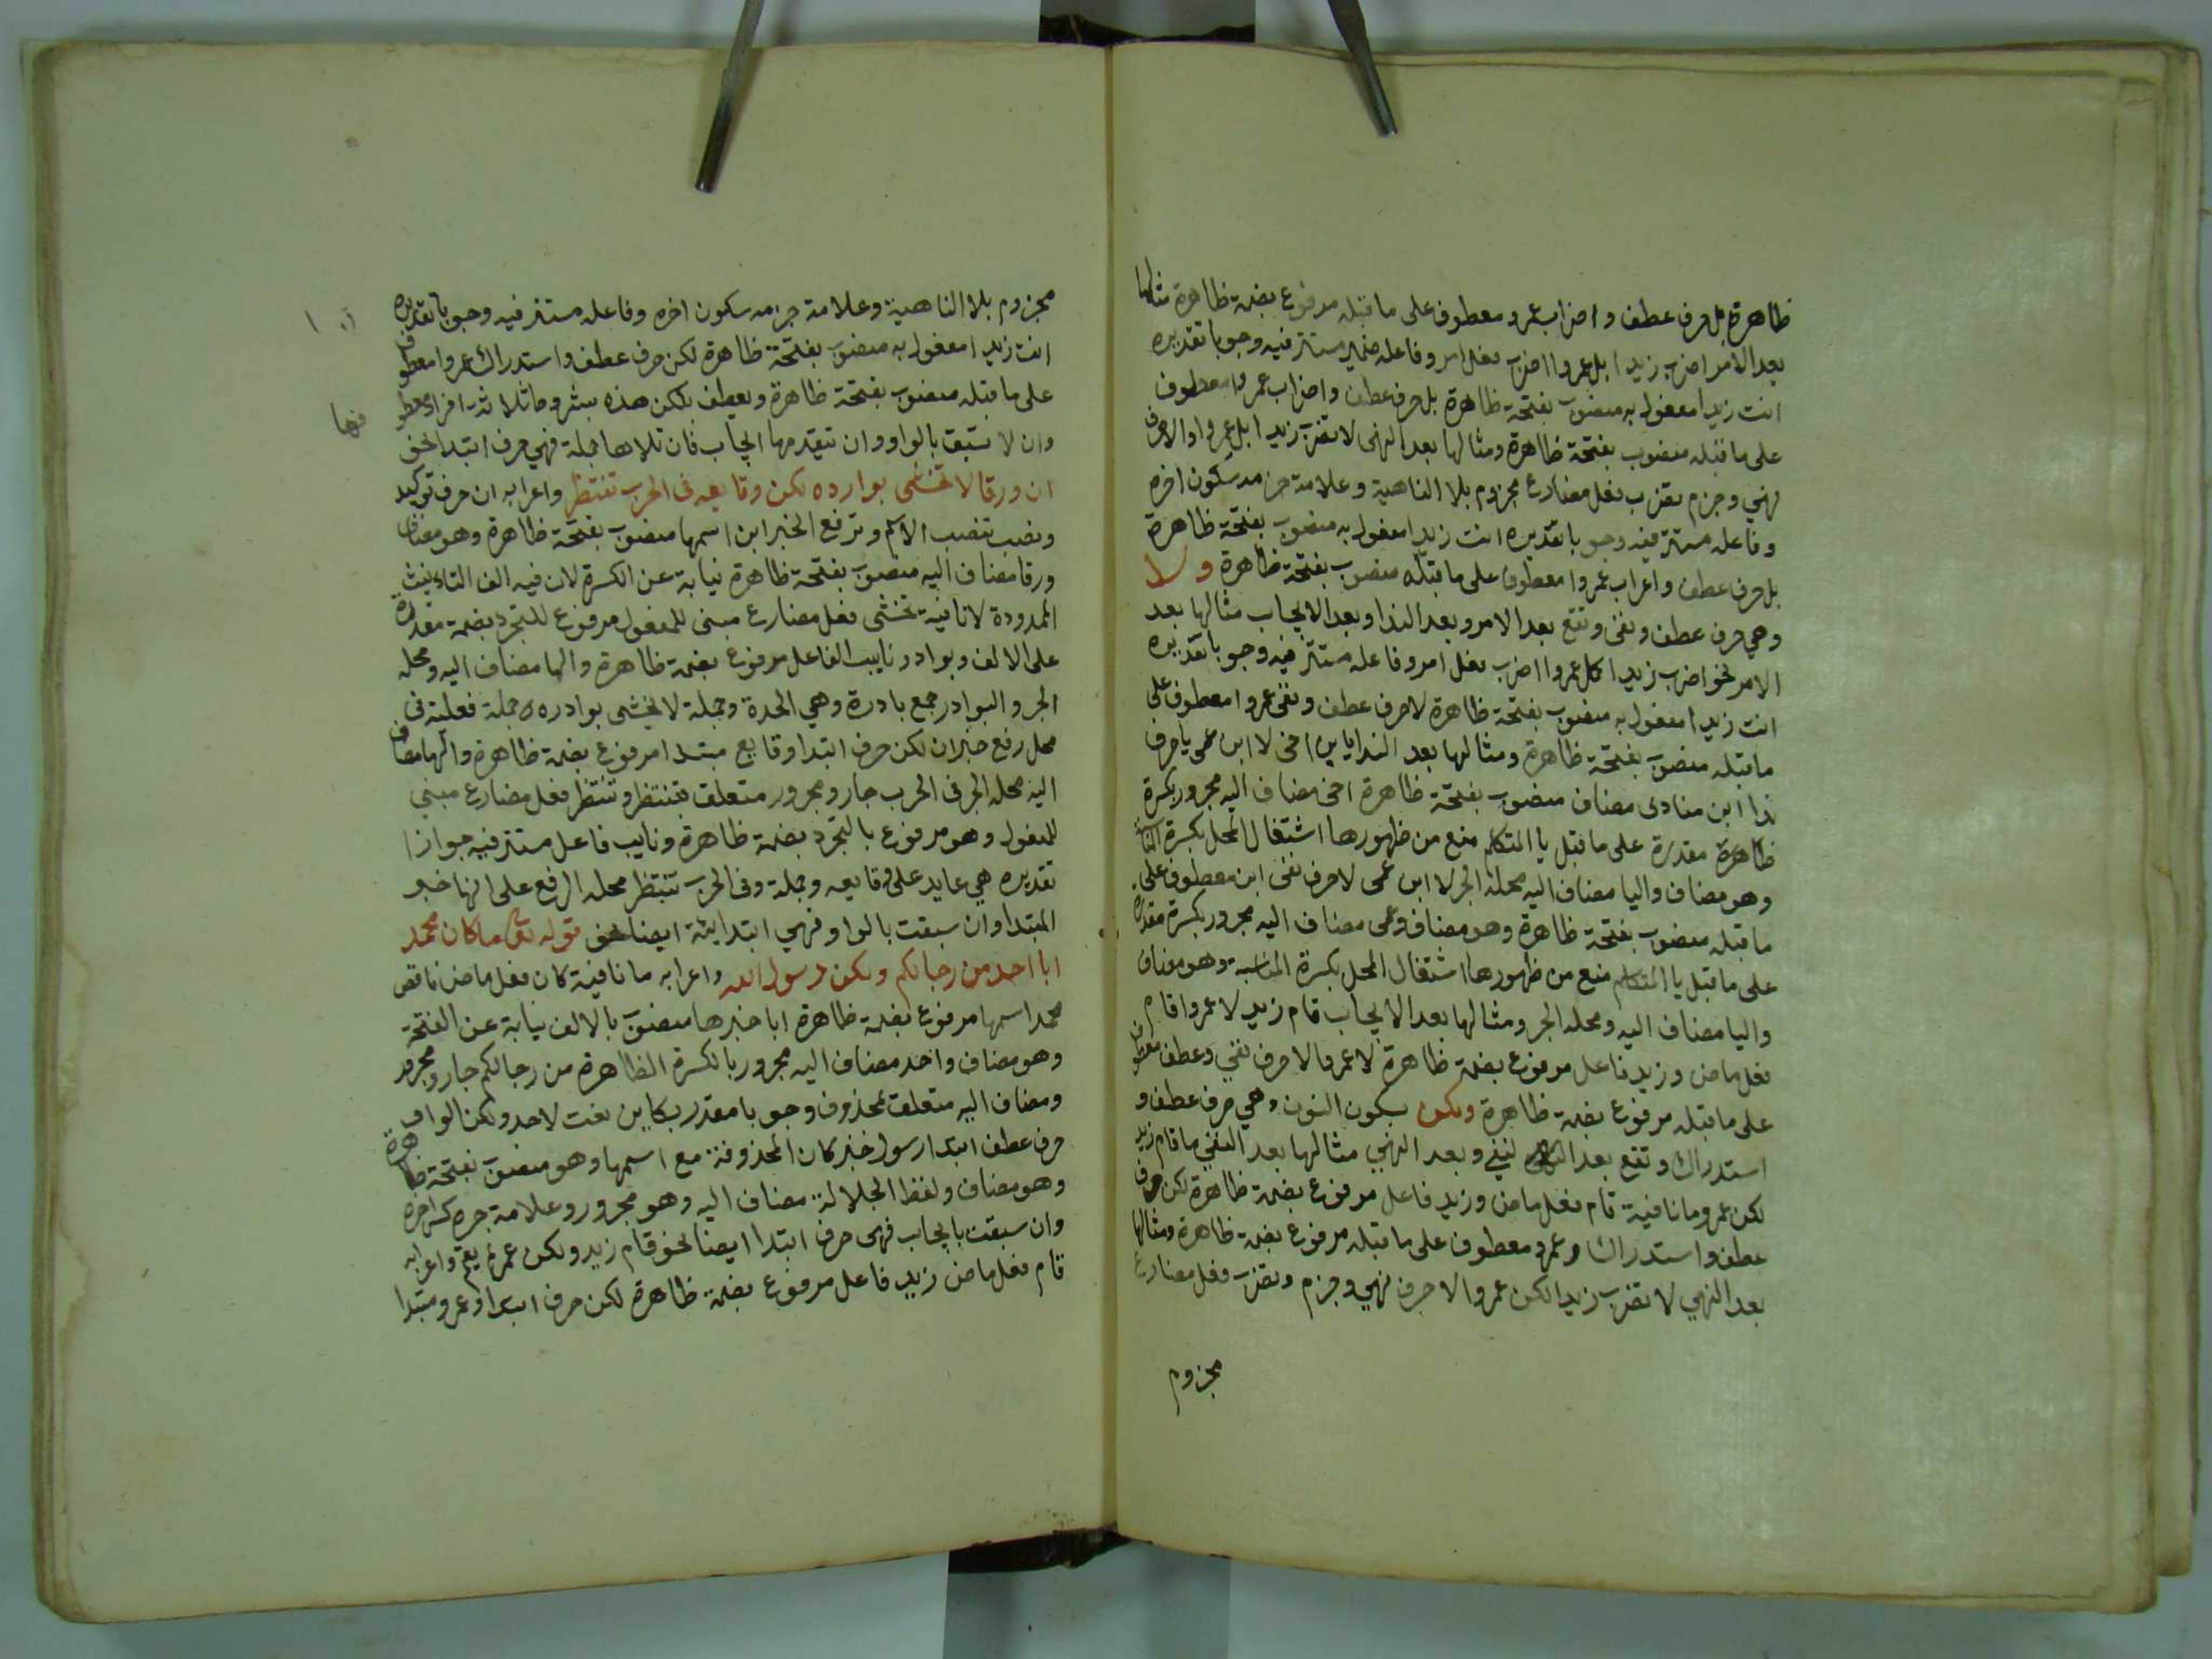 ظاهرة بل حرف عطف واضراب عمرو معطوف على ما قبله مرفوع بضمة ظاهرة مثالها
بعد الامر اضرب زيدا بل عمروا اضرب فعل امر وفاعله ضمير مستتر فيه وجوبا تقديره
انت زيدا مفعول به منصوب بفتحة ظاهرة بل حرف عطف واضراب عمروا معطوف
على ما قبله منصوب بفتحة ظاهرة ومثالها بعد النهى لا تضرب زيدا بل عمروا
نهي وجزم تضرب فعل مضارع مجزوم بلا الناهية وعلامة جزمه سكون اخره
وفاعله مستتر فيه وجوبا تقديره انت زيدا مفعول به منصوب بفتحة ظاهرة
بل حرف عطف واعراب عمروا معطوف على ما قبله منصوب بفتحة ظاهرة ولا
وهي حرف عطف ونفى وتقع بعد الامر وبعد الندا وبعد الايجاب مثالها بعد
الامر نحو اضرب زيدا لا عمروا اضرب فعل امر وفاعله مستتر فيه وجوبا تقديره
انت زيدا مفعول به منصوب بفتحة ظاهرة لا حرف عطف ونفى عمروا معطوف على
ما قبله منصوب بفتحة ظاهرة ومثالها بعد الندا يا ابن اخى لا ابن عمى يا حرف
ندا ابن منادى مضاف منصوب بفتحة ظاهرة اخى مضاف اليه مجرور بكسرة
ظاهرة مقدرة على ما قبل يا المتكلم منع من ظهورها اشتغال المحل بكسرة
وهو مضاف واليا مضاف اليه محله الجر لا ابن عمى لا حرف نفى ابن معطوف على
ما قبله منصوب بفتحة ظاهرة وهو مضاف وعمى مضاف اليه مجرور بكسرة مقدرة
على ما قبل يا المتكلم منع من ظهورها اشتغال المحل بكسرة المناسبة وهو مضاف
واليا مضاف اليه ومحله الجر ومثالها بعد الايجاب قام زيد لا عمروا قام
فعل ماض وزيد فاعل مرفوع بضمة ظاهرة لا عمرو لا حرف نفي وعطف معطوف
على ما قبله مرفوع بضمة ظاهرة ولكن بسكون النون وهي حرف عطف و
استدراك وتقع بعد النفي وبعد النهي مثالها بعد النفي ما قام زيد
لكن عمرو ما نافية قام فعل ماض وزيد فاعل مرفوع بضمة ظاهرة لكن حرف
عطف واستدراك وعمرو معطوف على ما قبله مرفوع بضمة ظاهرة ومثالها
بعد النهي لا تضرب زيدا لكن عمروا لا حرف نهي وجزم وتضرب فعل مضارع
مجزوم
مجزوم بلا الناهية وعلامة جزمه سكون اخره وفاعله مستتر فيه وجوبا تقديره
انت زيدا مفعول به منصوب بفتحة ظاهرة لكن حرف عطف واستدراك عمروا معطوف
على ما قبله منصوب بفتحة ظاهرة ويعطف بلكن هذه بشروط ثلاثة افراد معطوفها
وان لا تسبق بالواو وان تتقدمها ايجاب فان تلاها جملة فهي حرف ابتدا نحو
ان ورقا لا تخشى بوارده لكن وقايعه فى الحرب تنتظر واعرابه ان حرف توكيد
ونصب تنصب الاسم وترفع الخبر ابن اسمها منصوب بفتحة ظاهرة وهو مضاف
ورقا مضاف اليه منصوب بفتحة ظاهرة نيابة عن الكسرة لان فيه الف التاءنيث
الممدودة لا نافية تخشى فعل مضارع مبنى للمفعول مرفوع للتجرد بضمة مقدرة
على الالف وبوادر نايب الفاعل مرفوع بضمة ظاهرة والها مضاف اليه ومحله
الجر والبوادر جمع بادرة وهي الحدة وجملة لا يخشى بوادره جملة فعلية فى
محل رفع خبر ان لكن حرف ابتدا وقايع مبتدا مرفوع بضمة ظاهرة والها مضاف
اليه محله الجر فى الحرب جار ومجرور متعلق بتنتظر وتنتظر فعل مضارع مبني
للمفعول وهو مرفوع بالتجرد بضمة ظاهرة ونايب فاعل مستتر فيه جوازا
تقديره هي عايد على وقايعه وجملة وفى الحرب تنتظر محله الرفع على انها خبر
المبتدا وان سبقت بالواو فهي ابتدايئة ايضا نحو قوله تعالى ما كان محمد
ابا احد من رجالكم ولكن رسول الله واعرابه ما نافية كان فعل ماض ناقص
محمد اسمها مرفوع بضمة ظاهرة ابا خبرها منصوب بالالف نيابة عن الفتحة
وهو مضاف واحد مضاف اليه مجرور بالكسرة الظاهرة من رجالكم جار ومجرور
ومضاف اليه متعلق بمحذوف وجوبا مقدر بكاين نعت لاحد ولكن الواو
حرف عطف ابتدا رسول خبر كان المحذوفة مع اسمها وهو منصوب بفتحة ظاهرة
وهو مضاف ولفظ الجلالة مضاف اليه وهو مجرور وعلامة جره كسر اخره
وان سبقت بايجاب فهى حرف ابتدا ايضا نحو قام زيد ولكن عمرو لم يقم واعرابه
قام فعل ماض زيد فاعل مرفوع بضمة ظاهرة لكن حرف ابتدا وعمرو مبتدا